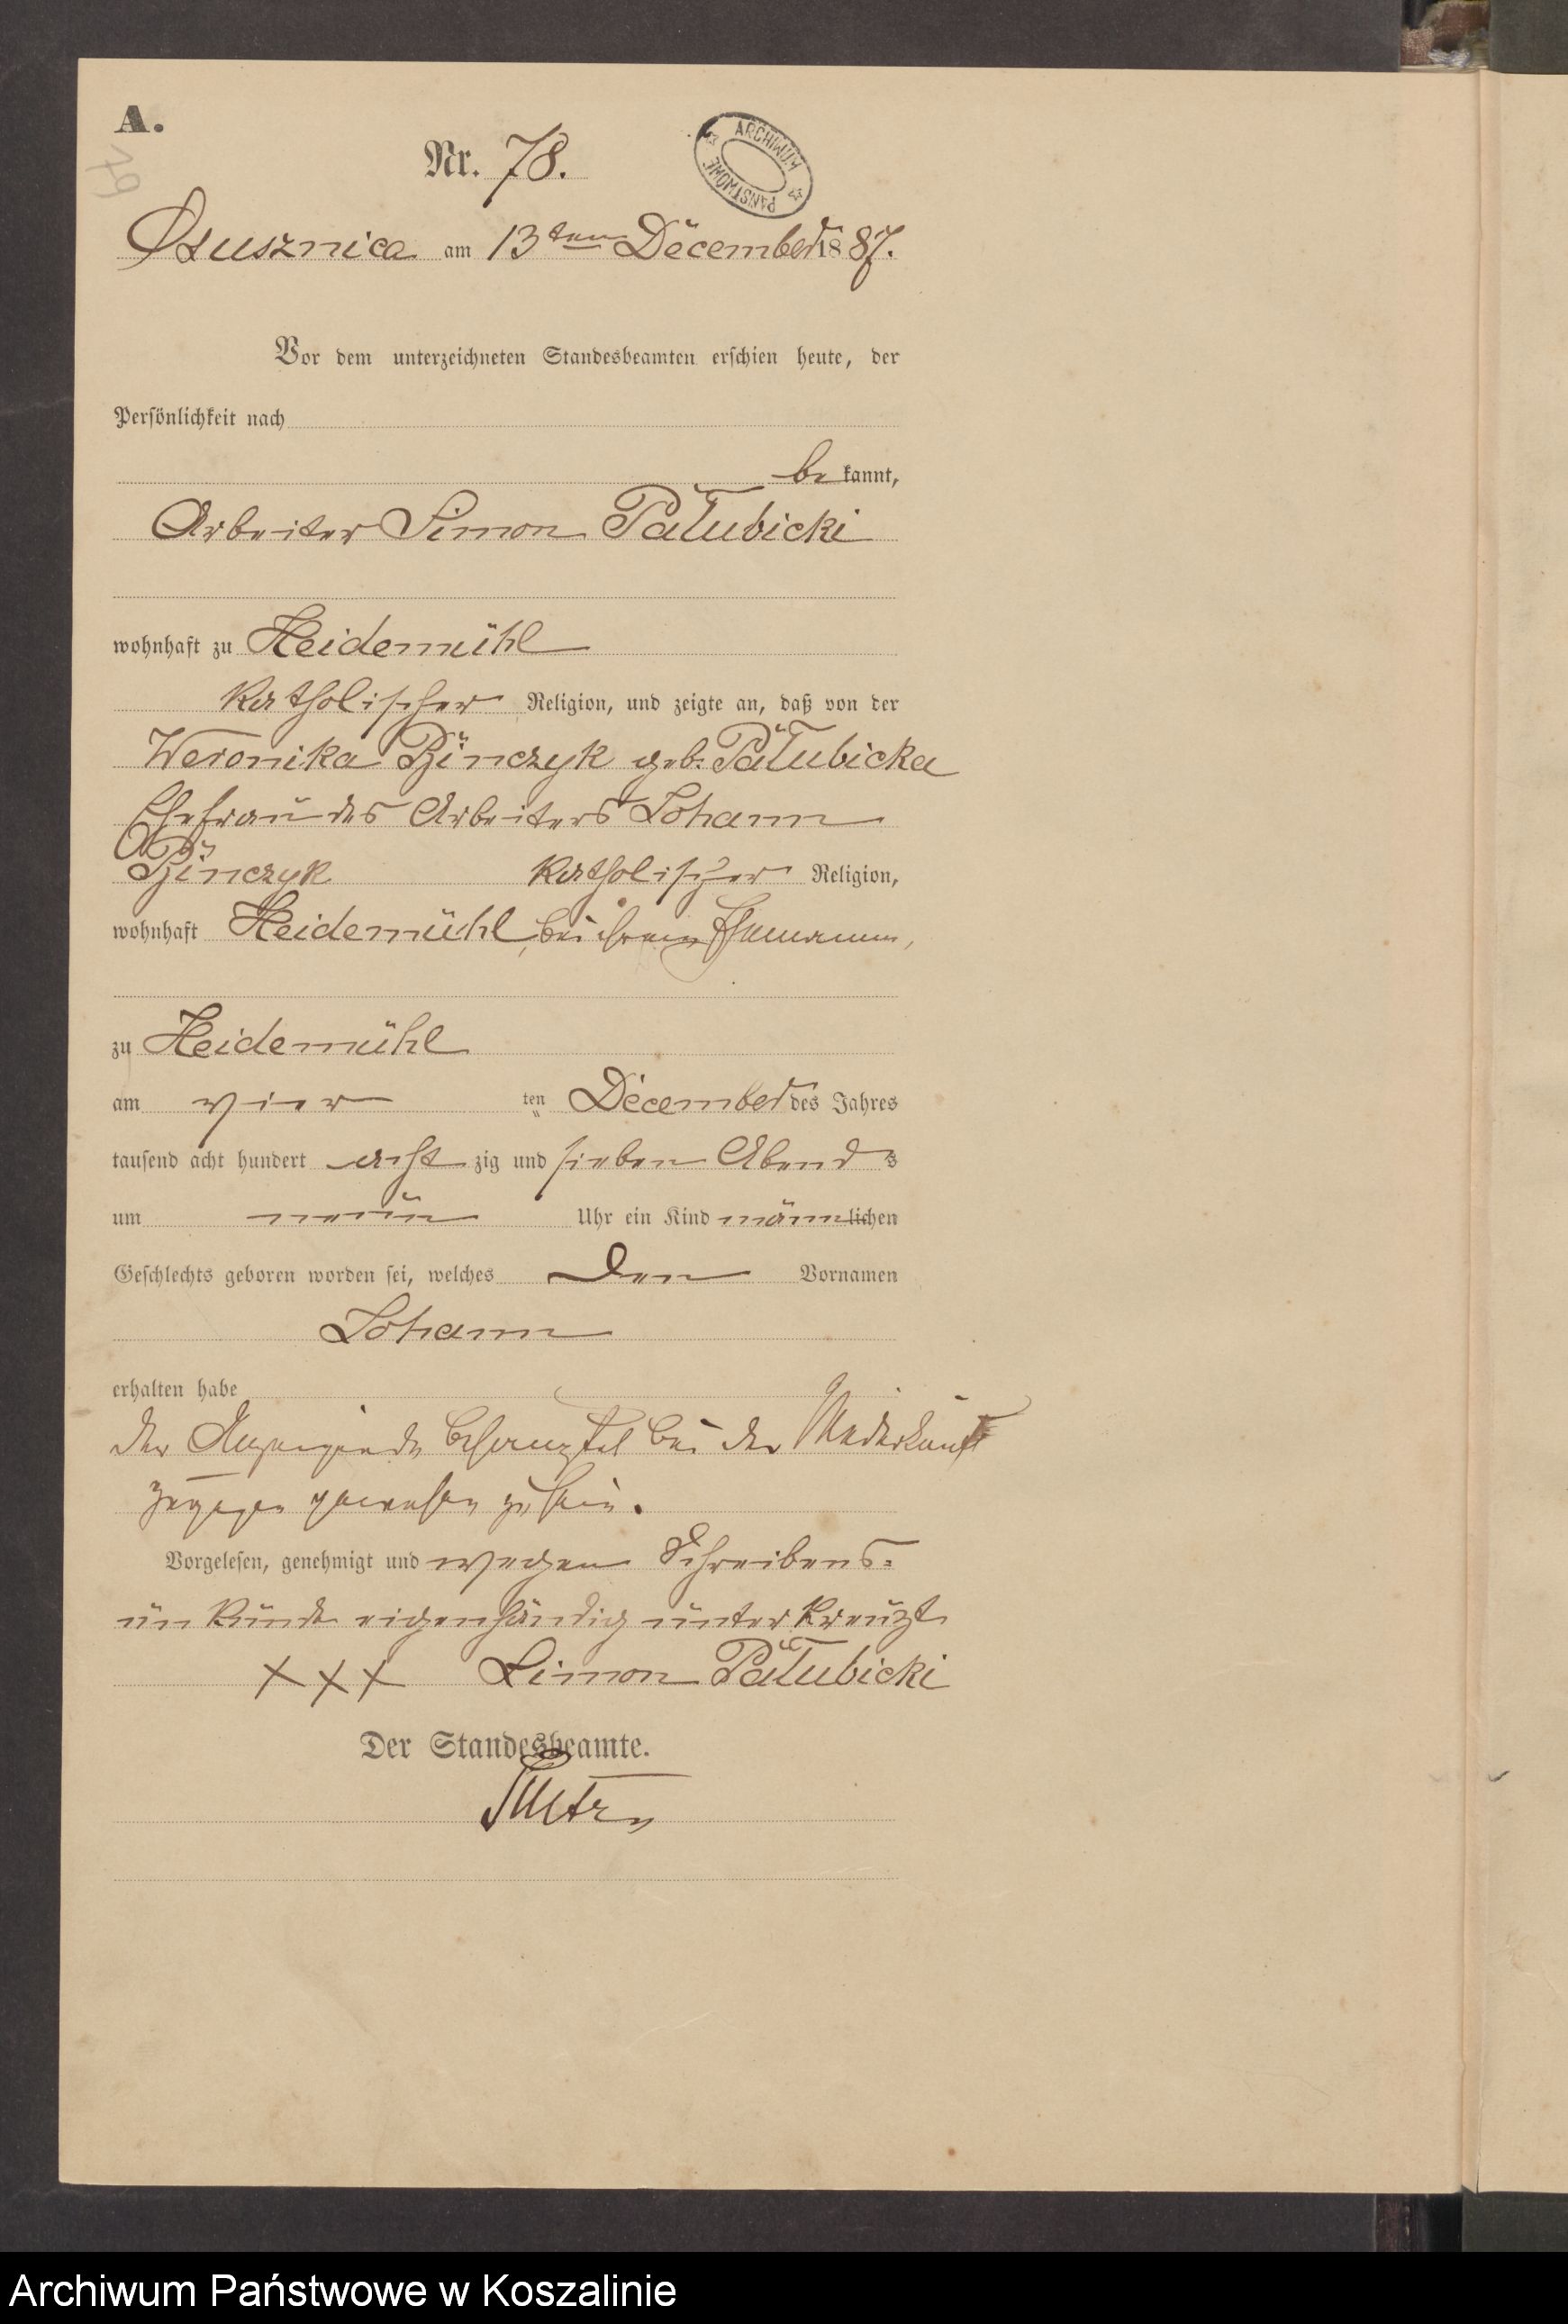 A.
79
Nr. 78.
ARCHIWUM PAŃSTWOWE
Osusznica am 13ten December 1887.
Vor dem unterzeichneten Standesbeamten erschien heute, der
Persönlichkeit nach
be kannt,
Arbeiter Simon Pałubicki
wohnhaft zu Heidemühl
katholischer Religion, und zeigte an, daß von der
Weronika Binczyk geb. Pałubicka
Ehefrau des Arbeiters Johann
Binczyk katholischer Religion,
wohnhaft Heidemühl, bei ihrem Ehemann,
zu Heidemühl
am vier ten December des Jahres
tausend acht hundert acht zig und sieben Abends
um neun Uhr ein Kind männlichen
Geschlechts geboren worden sei, welches den Vornamen
Johann
erhalten habe
Der Anzeigende behauptet bei der Niederkunft
zugegen gewesen zu sein.
Vorgelesen, genehmigt und wegen Schreibens-
unkunde eigenhändig unterkreuzt
XXX Simon Pałubicki
Der Standesbeamte.
Archiwum Państwowe w Koszalinie